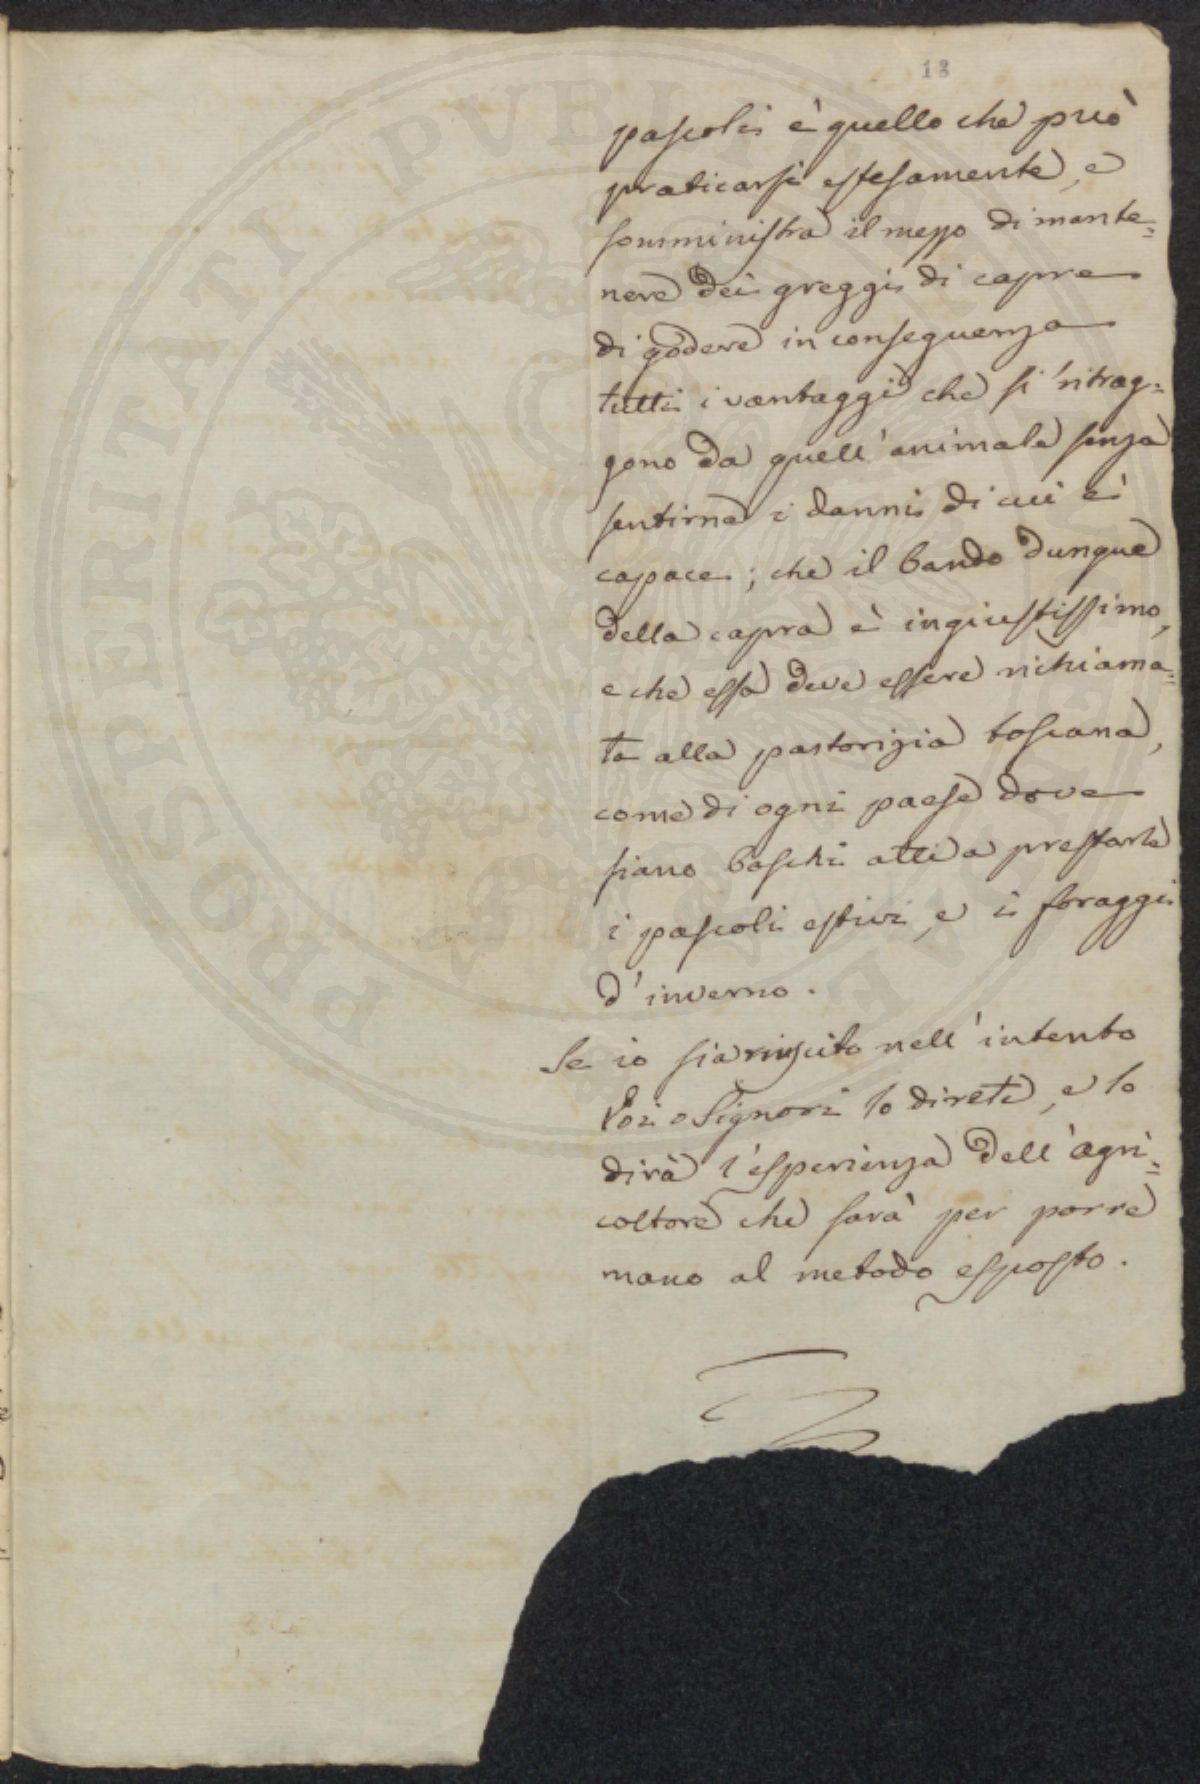 18
pascoli è quello che può
praticarsi estesamente, e
somministra il mezzo di mante=
nere dei greggi di capre
di godere in conseguenza
tutti i vantaggi che si ritrag=
gono da quell'animale senza
sentirne i danni di cui è
capace; che il bando dunque
della capra è ingiustissimo,
e che essa deve essere richiama=
ta alla pastorizia toscana,
come di ogni paese dove
siano boschi atti a prestarle
i pascoli estivi, e i foraggi
d'inverno.
Se io sia riuscito nell'intento
Voi o Signori lo direte, e lo
dirà l'esperienza dell'agri=
coltore che sarà per porre
mano al metodo esposto.
PROSPERITATI PUBLICAE